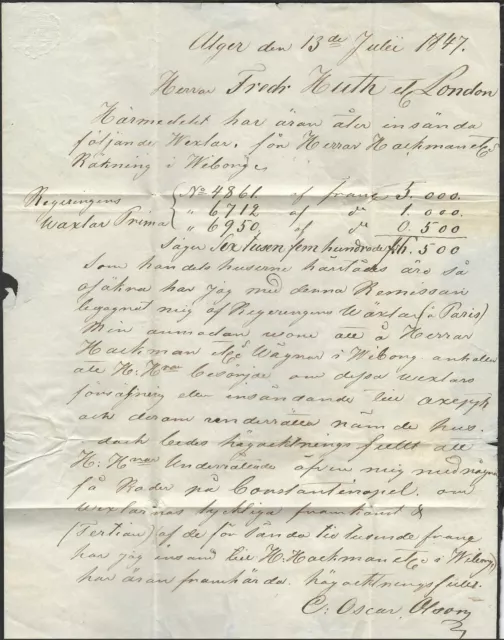 Alger den 13de Julii 1847.
Herrar Fredr Huth et Co London
Härmedelst har äran åter insända
följande Wexlar, för Herrar Hackman et Co
Räkning i Wiborg
Regerungens Waxlar Prima
No 4861 af franq 5.000.
" 6712 af do 1.000.
" 6950 af do 0.500
Säger Sex tusen fem hundrade f 6.500
Som handelshuserne härstädes äro så
osäkra har jag med denna Remissan
begagnat mig af Regerungens Wäxlar (à Paris)
Min anmodan vore att å Herrar
Hackman et Co Wägnar i Wiborg anhålla
att H. Hrar besörjde om dessa wexlars
försäljning eller insändande till accept
och derom underrätta nämde hus.
dock bedes högacktningsfullt att
H. Hrar Underrättade äfven mig med några
få Rader på Constantinopel, om
wexlarnas lyckliga framkomst &
(Tertian) af de för sända tio tusende franq
har jag insand till H. Hackman et Co i Wiborg
har äran framhärda. högacktningsfullt
C: Oscar